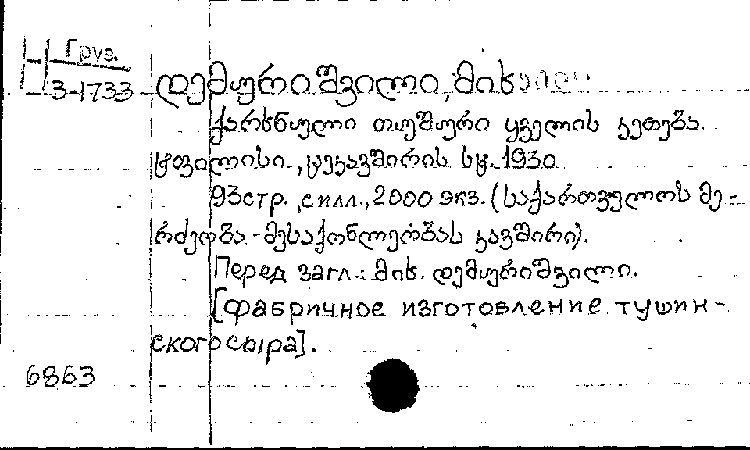 Груз.
3-1733
დემურიშვილი, მიხაილ
ქარხნული თუშური ყველის კეთება.
ტფილისი, ცეკავშირის სტ. 1930
93стр., с илл., 2000 экз. (საქართველოს მე-
რძეობა-მესაქონლეობას კავშირი).
Перед загл.: მიხ. დემურიშვილი.
[Фабричное изготовление тушин-
ского сыра].
6863